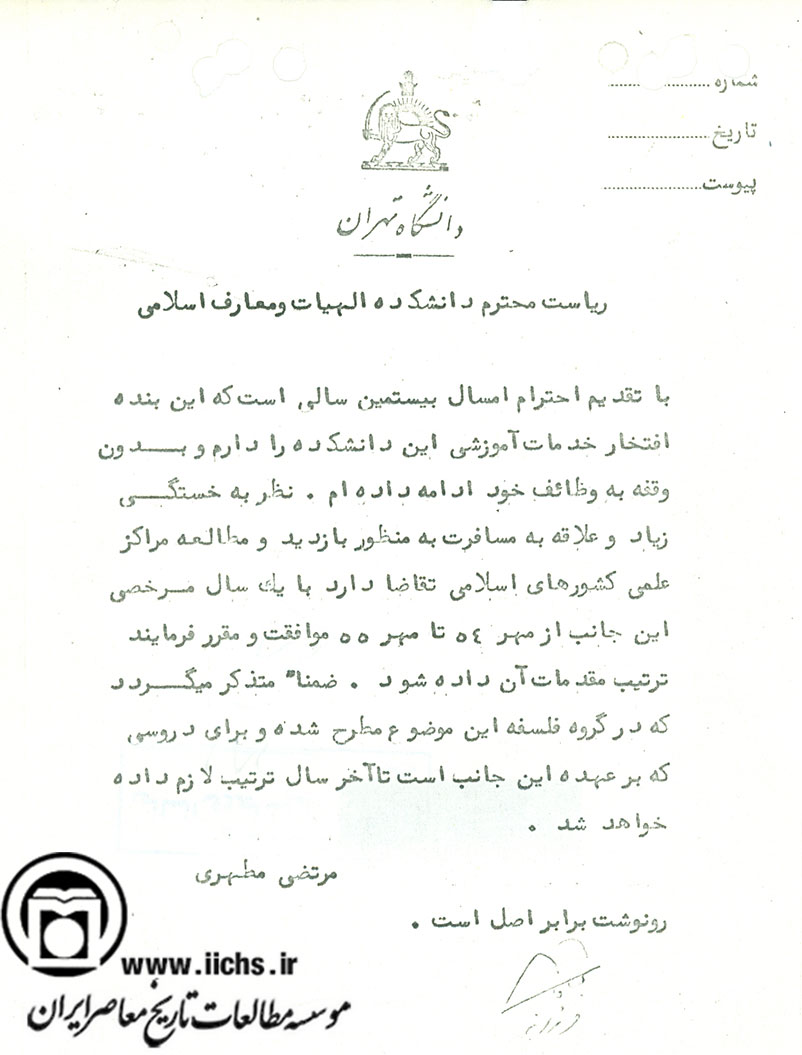 شماره
تاریخ
پیوست
دانشگاه تهران
ریاست محترم دانشکده الهیات ومعارف اسلامی
با تقدیم احترام امسال بیستمین سالی است که این بنده
افتخار خدمات آموزشی این دانشکده را دارم و بدون
وقفه به وظائف خود ادامه داده ام . نظر به خستگی
زیاد و علاقه به مسافرت به منظور بازدید و مطالعه مراکز
علمی کشورهای اسلامی تقاضا دارد با یك سال مرخصی
این جانب از مهر ٥٤ تا مهر ٥٥ موافقت و مقرر فرمایند
ترتیب مقدمات آن داده شود . ضمنا" متذکر میگردد
که در گروه فلسفه این موضوع مطرح شده و برای دروسی
که بر عهده این جانب است تاآخر سال ترتیب لازم داده
خواهد شد .
مرتضی مطهری
رونوشت برابر اصل است .
www.iichs.ir
موسسه مطالعات تاریخ معاصر ایران